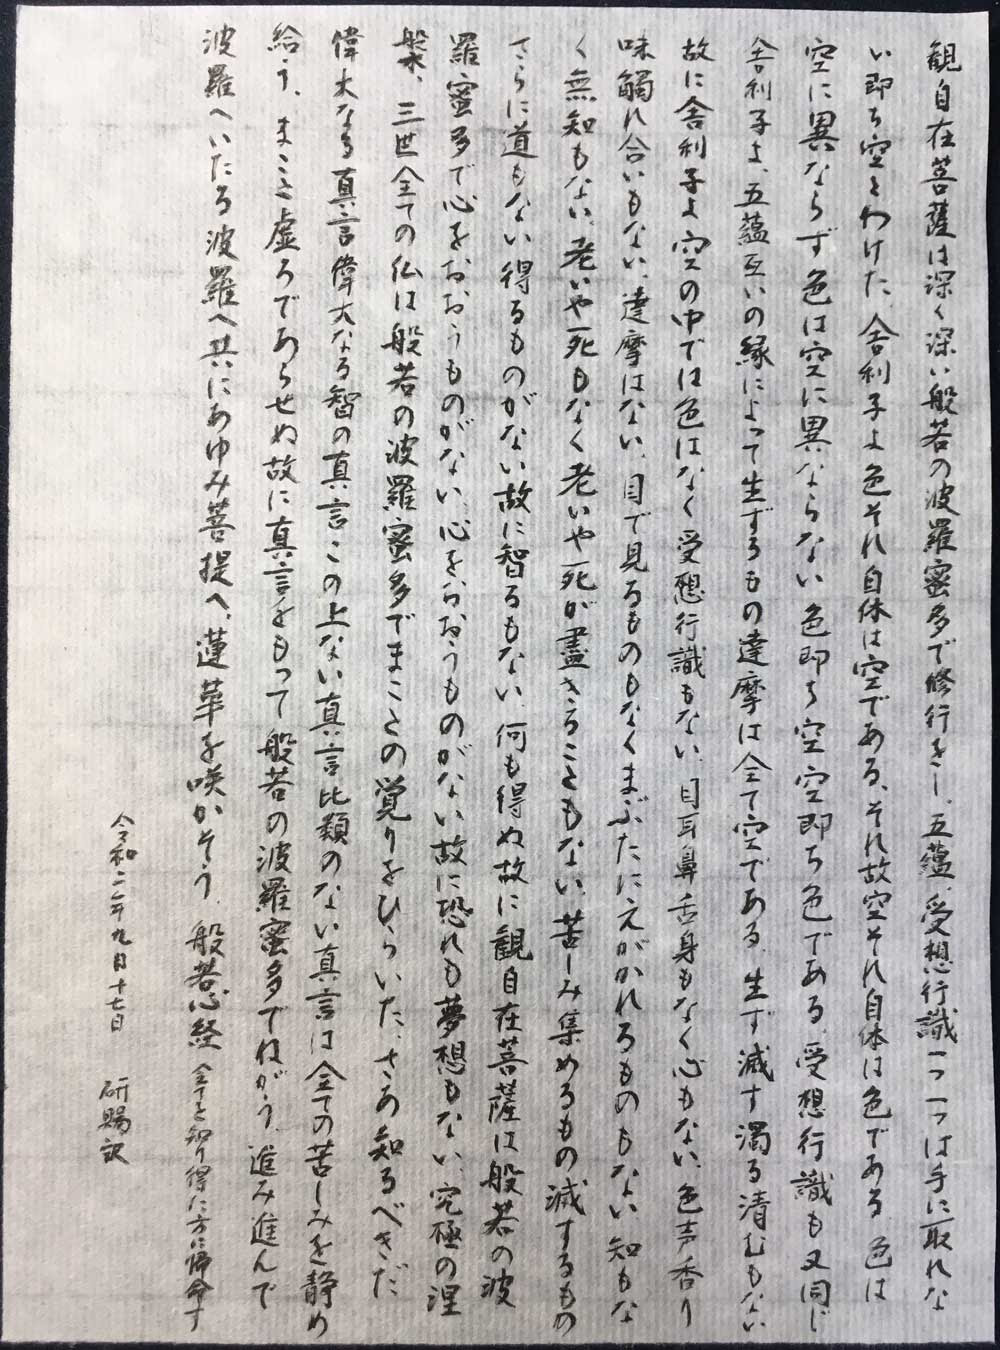 観自在菩薩は深く深い般若の波羅蜜多で修行をし、五蘊、受想行識一つ一つは手に取れな
い即ち空とわけた、舎利子よ色それ自体は空である、それ故空それ自体は色である 色は
空に異ならず色は空に異ならない色即ち空空即ち色である、受想行識も又同じ
舎利子よ、五蘊互いの縁によって生ずるもの達摩は全て空である、生ず滅す濁る清むもない
故に舎利子よ空の中では色はなく受想行識もない、目耳鼻舌身もなく心もない、色声香り
味触れ合いもない、達摩はない、目で見るものもなくまぶたにえがかれるものもない知もな
く無知もない、老いや死もなく老いや死が盡きることもない、苦しみ集めるもの滅するもの
さらに道もない得るものがない故に智るもない、何も得ぬ故に観自在菩薩は般若の波
羅蜜多で心をおおうものがない、心をおおうものがない故に恐れも夢想もない、究極の涅
槃、三世全ての仏は般若の波羅蜜多でまことの覚りをひらいた、さあ知るべきだ
偉大なる真言偉大なる智の真言この上ない真言比類のない真言は全ての苦しみを静め
給う、まこと虚ろであらせぬ故に真言をもって般若の波羅蜜多でねがう、進み進んで
波羅へいたる波羅へ共にあゆみ菩提へ、蓮華を咲かそう、般若心経 全てを知り得た方に帰命す
令和二年九月十七日 研賜訳